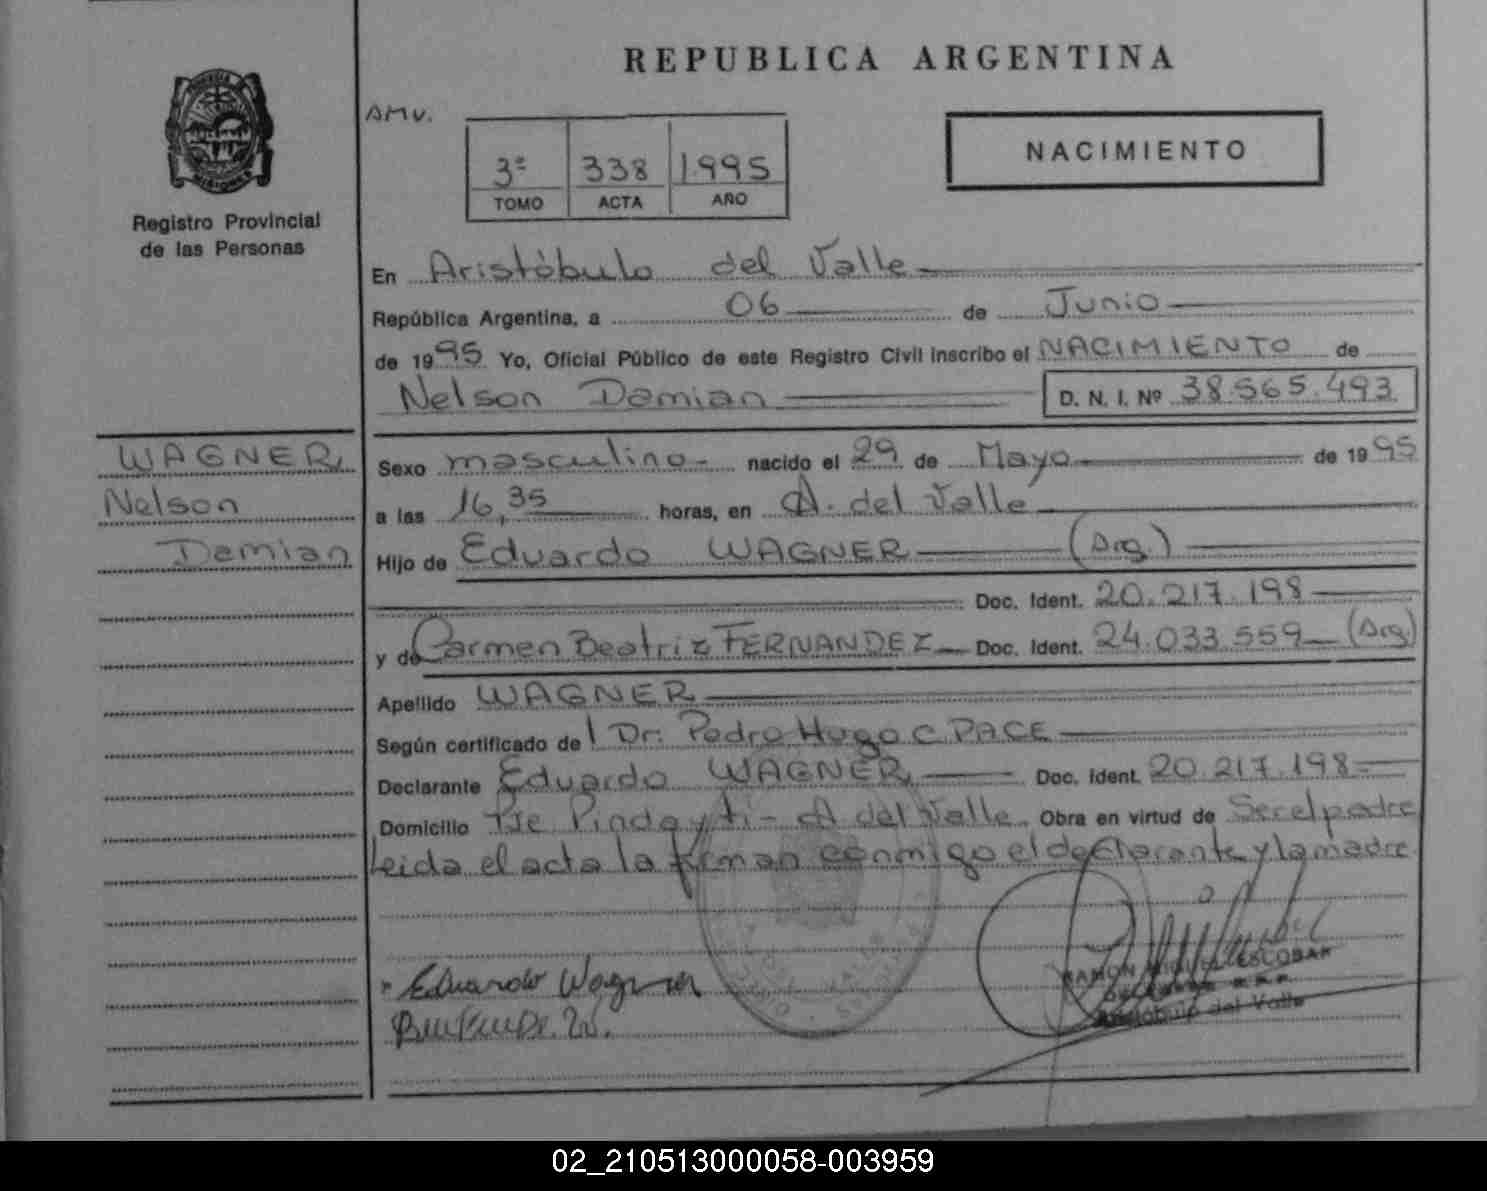 REPUBLICA ARGENTINA
PROVINCIA
MISIONES
Registro Provincial
de las Personas
AMV.
3º 338 1.995
TOMO ACTA AÑO
NACIMIENTO
En Aristóbulo del Valle
República Argentina, a 06 de Junio
de 1995 Yo, Oficial Público de este Registro Civil inscribo el NACIMIENTO de
Nelson Damian D. N. I. Nº 38.565.493
WAGNER,
Nelson
Damian
Sexo masculino- nacido el 29 de Mayo de 1995
a las 16,35 horas, en A. del Valle
Hijo de Eduardo WAGNER (Arg.)
Doc. Ident. 20.217.198
y de Carmen Beatriz FERNANDEZ Doc. Ident. 24.033.559 (Arg)
Apellido WAGNER
Según certificado de Dr. Pedro Hugo C PACE
Declarante Eduardo WAGNER, Doc. Ident. 20.217.198
Domicilio Pje Pindayti- A del Valle. Obra en virtud de Ser el padre
Leida el acta la firman conmigo el declarante y la madre
Eduardo Wagner
RAMON MIGUEL ESCOBAR
Aristóbulo del Valle
02_210513000058-003959